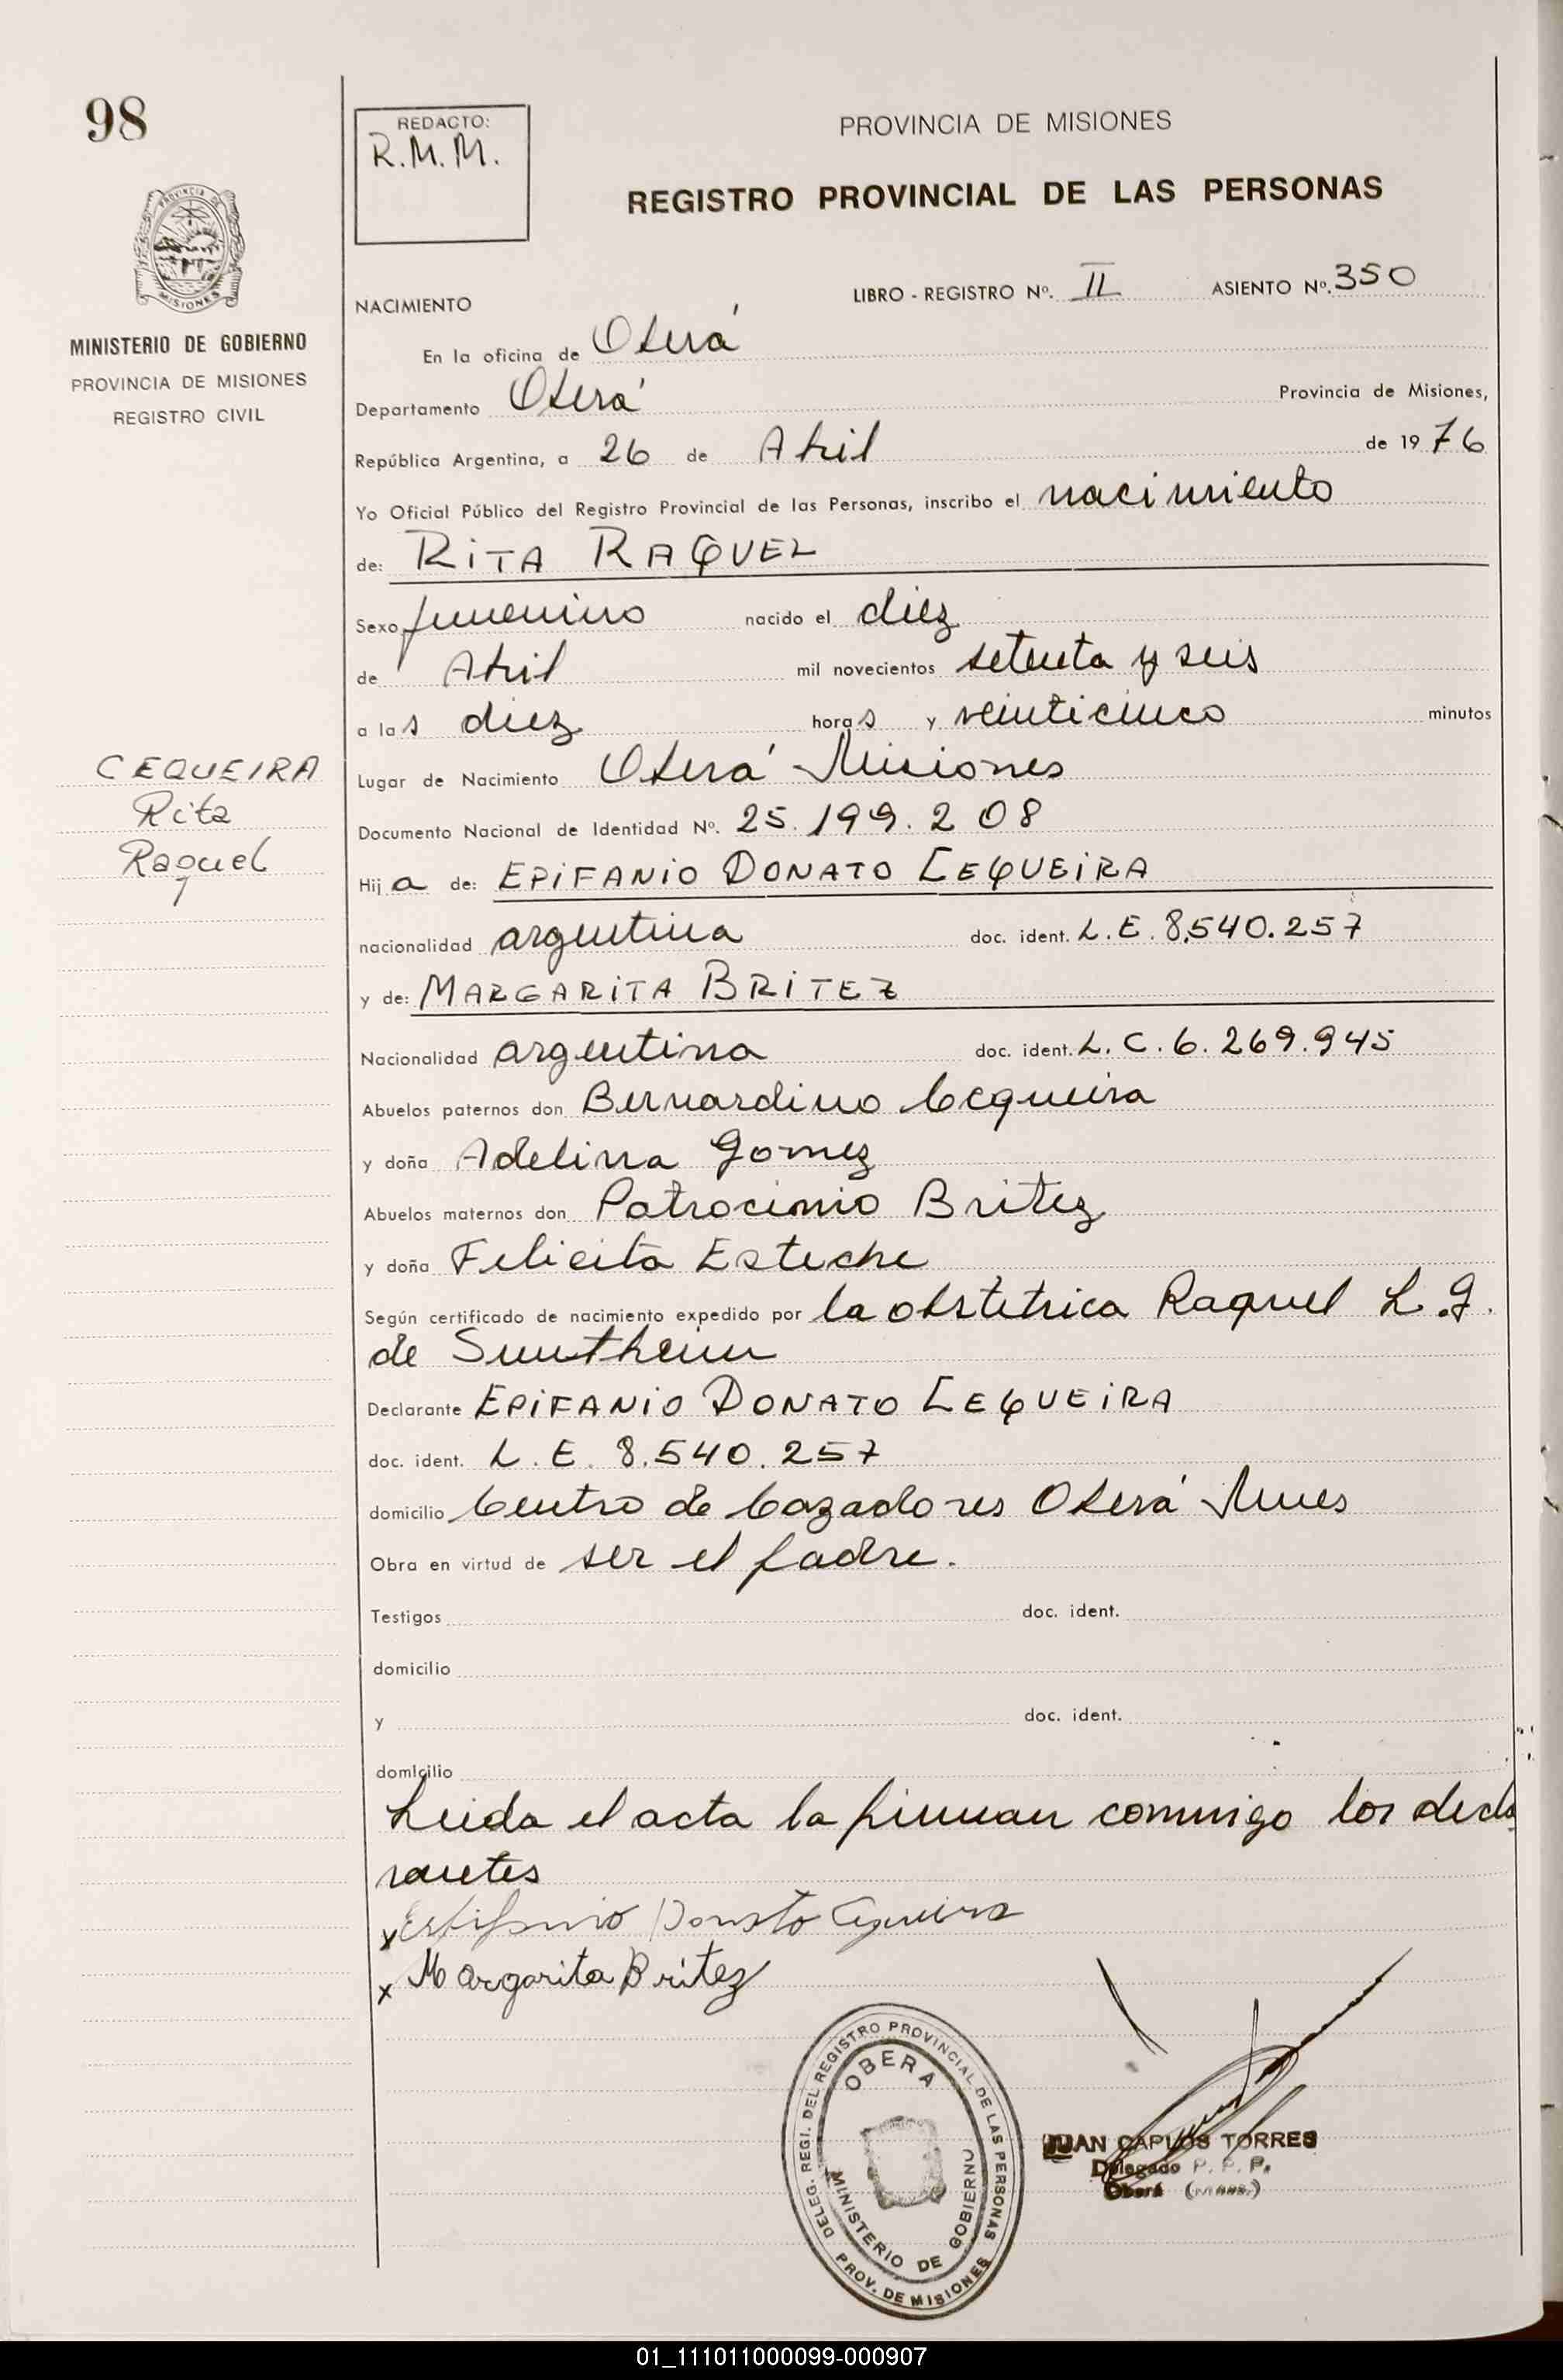 98
REDACTO:
R.M.M.
PROVINCIA DE MISIONES
REGISTRO PROVINCIAL DE LAS PERSONAS
PROVINCIA DE
MISIONES
MINISTERIO DE GOBIERNO
PROVINCIA DE MISIONES
REGISTRO CIVIL
NACIMIENTO LIBRO - REGISTRO Nº. II ASIENTO Nº. 350
En la oficina de Oberá
Departamento Oberá Provincia de Misiones,
República Argentina, a 26 de Abril de 1976
Yo Oficial Público del Registro Provincial de las Personas, inscribo el nacimiento
de: RITA RAQUEL
Sexo femenino nacido el diez
de Abril mil novecientos setenta y seis
a las diez horas y veinticinco minutos
CEQUEIRA
Rita
Raquel
Lugar de Nacimiento Oberá Misiones
Documento Nacional de Identidad Nº. 25.199.208
Hija de: EPIFANIO DONATO CEQUEIRA
nacionalidad argentina doc. ident. L.E. 8.540.257
y de: MARGARITA BRITEZ
Nacionalidad argentina doc. ident. L.C. 6.269.945
Abuelos paternos don Bernardino Cequeira
y doña Adelina Gomez
Abuelos maternos don Patrocinio Britez
y doña Felicita Esteche
Según certificado de nacimiento expedido por la obstetrica Raquel L.G.
de
Declarante EPIFANIO DONATO CEQUEIRA
doc. ident. L.E. 8.540.257
domicilio Centro de Cazadores Oberá Mnes
Obra en virtud de ser el padre.
Testigos doc. ident.
domicilio
y doc. ident.
domicilio
Leida el acta la firman conmigo los decla
rantes
x Donato Cequeira
x Margarita Britez
DELEG. REGI. DEL REGISTRO PROVINCIAL DE LAS PERSONAS
OBERA
MINISTERIO DE GOBIERNO
PROV. DE MISIONES
JUAN CARLOS TORRES
Delegado
Oberá
01_111011000099-000907